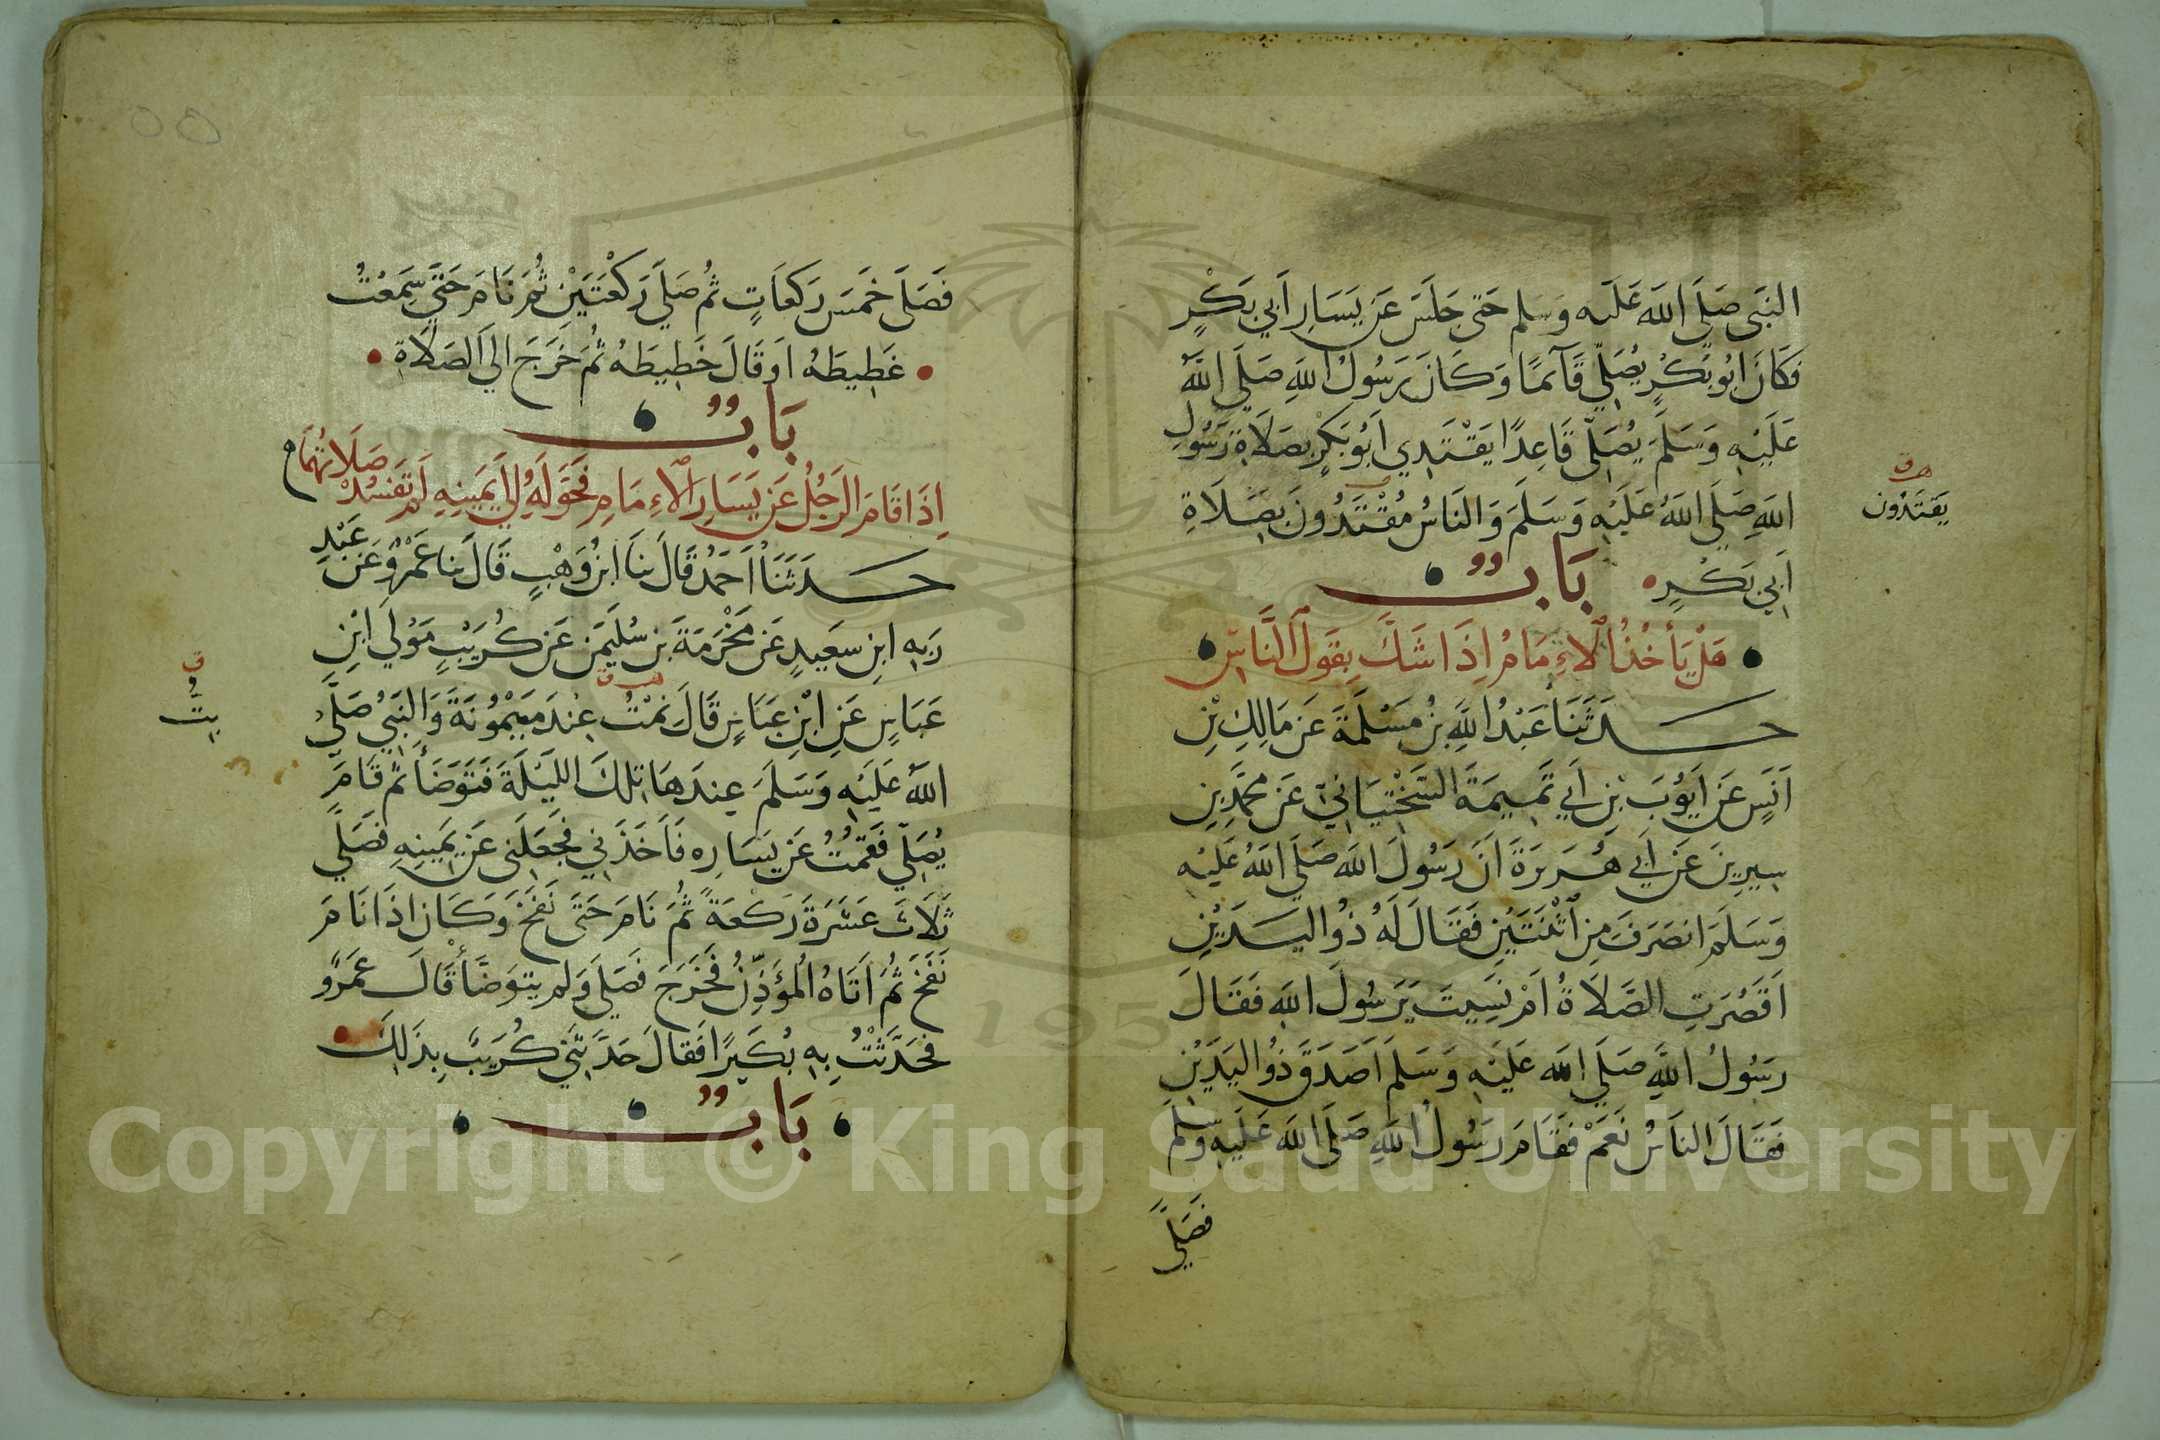 النَبِي صَلَّي اللَه عَلَيه وَسَلم حَتى جَلَسَ عَن يَسَارِ اَبي بَكْرٍ
فَكَانَ ابُو بَكْرٍ يُصَلِّي قَآئمًا وَكَانَ رَسُولُ اللهِ صَلَي اللهُ
عَلَيْهِ وَسَلَمَ يُصَلِّي قَاعِدًا يَقْتَدِي اَبُو بَكْرٍ بصَلَاةِ رَسُولِ
اللهِ صَلَي اللهُ عَلَيْهِ وَسَلَمَ وَالنَاسُ مُقْتَدُونَ بِصَلَاةِ
هـ ق
يَقتَدُون
اَبِي بَكْرٍ
بَابٌ
هَلْ يَأخُذُ الْاِمَامُ اِذَا شَكَّ بِقَولِ النَّاسِ
حَدَثَنَا عَبْدُ اللهِ بنُ مَسْلَمَةَ عَن مَالِكِ بْنِ
اَنَسٍ عَن اَيُوبَ بْنِ اَبِي تَمِيمَةَ السَّخْتِيَانِيِّ عَن مُحَمَّدِ بنِ
سِيرِينَ عَن اَبِي هُرَيرَةَ اَنَ رَسُولَ اللهِ صَلَي اللهُ عَلَيْهِ
وَسَلَمَ انصَرَفَ مِنِ اثْنَتَيْنِ فَقَالَ لَهُ ذُو اليَدَيْنِ
اَقَصُرَتِ الصَّلَاةُ اَمْ نَسِيتَ يَرَسُولَ اللهِ فَقَالَ
رَسُولُ اللهِ صَلَي الله عَلَيْهِ وَسَلَمَ اَصَدَقَ ذُو اليَدَيْنِ
فَقَالَ النَاسُ نَعَمْ فَقَامَ رَسُولُ اللهِ صَلَي اللهُ عَلَيْهِ وَسَلم
فَصَلَي
فَصَلَى خَمَسَ رَكَعَاتٍ ثُم صَلَي رَكْعَتَيْنِ ثُمَ نَامَ حَتَي سَمِعْتُ
غَطِيطَهُ اَو قَالَ خَطِيطَهُ ثُم خَرَجَ الَي الصَلَاةِ
بَابٌ
اِذَا قَامَ الرَجُلُ عَن يَسَارِ الْاِمَامِ فَحَوَلَهُ اِلي يَمِينِهِ لَمْ تَفْسُدْ صَلَاتُهُمَا
حَدَثَنَا اَحَمَدُ قَالَ نَنا ابنُ وَهْبٍ قَالَ نَنا عَمْرٌو عَن عَبْدِ
رَبِهِ ابنِ سَعِيدٍ عَن مَخْرَمَةَ بن سُلَيمَن عَن كُرَيْبٍ مَوْلَي ابْنِ
عَبَاسٍ عَنِ ابْنِ عَبَاسٍ قَالَ نِمْتُ عِندَ مَيْمُونَةَ وَالنَبِيُ صَلَّي
ق
بِتُّ
اللهُ عَلَيْهِ وَسَلَمَ عِندَهَا تِلكَ الليْلَةَ فَتَوَضَأَ ثُم قَامَ
يُصَلِّي فَقُمْتُ عَن يَسَارِه فَاَخَذَنِي فَجَعَلَنِي عَن يَمِينِهِ فَصَلَّي
ثَلَاثَ عَشْرَةَ رَكْعَةً ثُمَ نَامَ حَتَى نَفَخَ وَكَانَ اذَا نَامَ
نَفَخَ ثُمَ اَتَاهُ الْمُؤَذِّنُ فَخَرَجَ فَصَلَي وَلَم يتوَضَّأْ قَالَ عمَرٌو
فَحَدَّثْتُ بِهِ بُكَيْرًا فَقَالَ حَدَّثَنِي كُرَيْبٌ بِذَلِكَ
بَابٌ
Copyright © King Saud University
1957